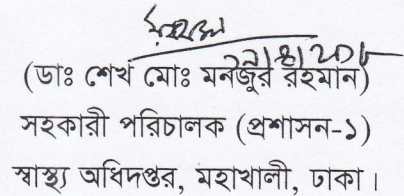 (ডাঃ শেখ মোঃ মনজুর রহমান)
সহকারী পরিচালক (প্রশাসন-১)
স্বাস্থ্য অধিদপ্তর, মহাখালী, ঢাকা।